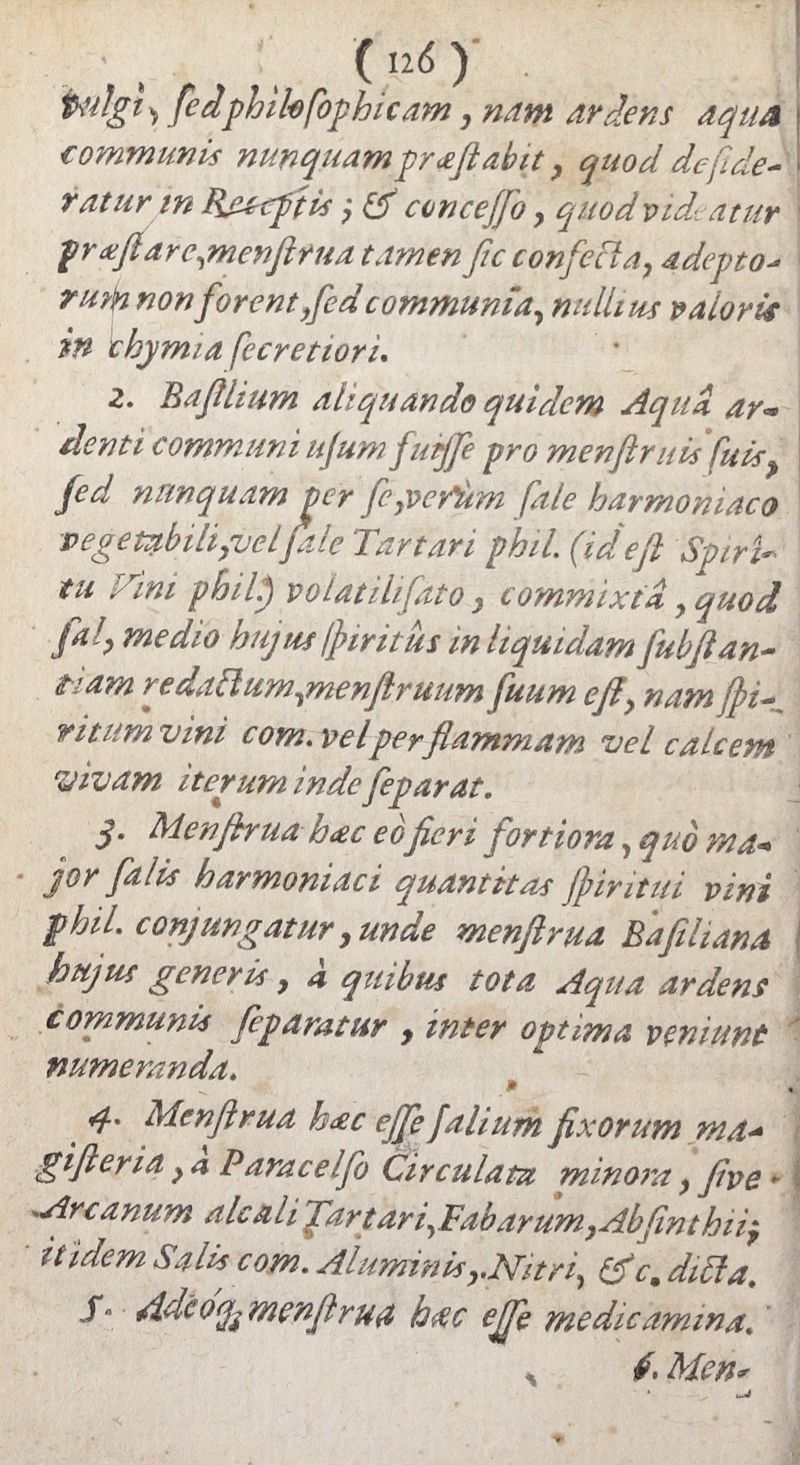 ( 126 )
vulgi, ſed philoſophicam, nam ardens aqua
communis nunquam præſtabit, quod deſide-
ratur in Receptis; & conceſſo, quod videatur
præſtare, menſtrua tamen ſic confecta, adepto-
rum non forent, ſed communia, nullius valoris
in chymia ſecretiori.
2. Baſilium aliquando quidem Aquâ ar-
denti communi uſum fuiſſe pro menſtruis ſuis,
ſed nunquam per ſe, verùm ſale harmoniaco
vegetabili, vel ſale Tartari phil. (id eſt Spiri-
tu Vini phil.) volatiliſato, commixtâ, quod
ſal, medio hujus ſpiritûs in liquidam ſubſtan-
tiam redactum, menſtruum ſuum eſt, nam ſpi-
ritum vini com. vel per flammam vel calcem
vivam iterum inde ſeparat.
3. Menſtrua hæc eò fieri fortiora, quò ma-
jor ſalis harmoniaci quantitas ſpiritui vini
phil. conjungatur, unde menſtrua Baſiliana
hujus generis, à quibus tota Aqua ardens
communis ſeparatur, inter optima veniunt
numeranda.
4. Menſtrua hæc eſſe ſalium fixorum ma-
giſteria, à Paracelſo Circulata minora, ſive
Arcanum alcali Tartari, Fabarum, Abſinthii;
itidem Salis com. Aluminis, Nitri, &c. dicta.
5. Adeóq; menſtrua hæc eſſe medicamina.
6. Men-